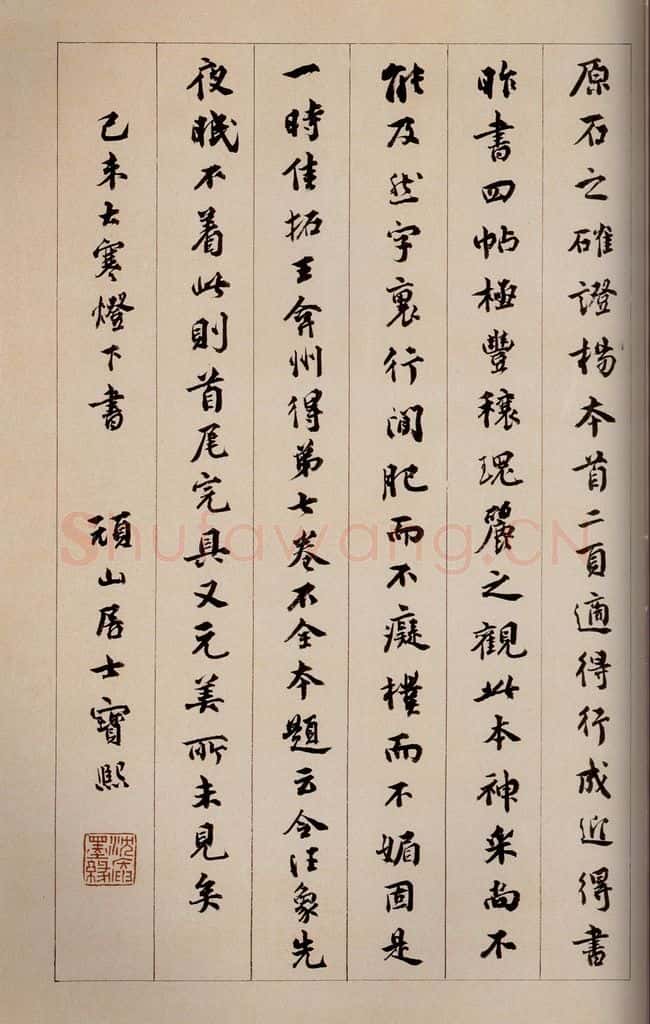 原石之確證楊本首二頁適得行成近得書
昨書四帖極豐穠瑰麗之觀此本神采尚不
能及然字裏行間肥而不癡樸而不媚固是
一時佳拓王弇州得第七卷不全本題云令汪象先
夜眠不着此則首尾完具又元美所未見矣
己未大寒燈下書 頑山居士寶熙
Shufawang.CN